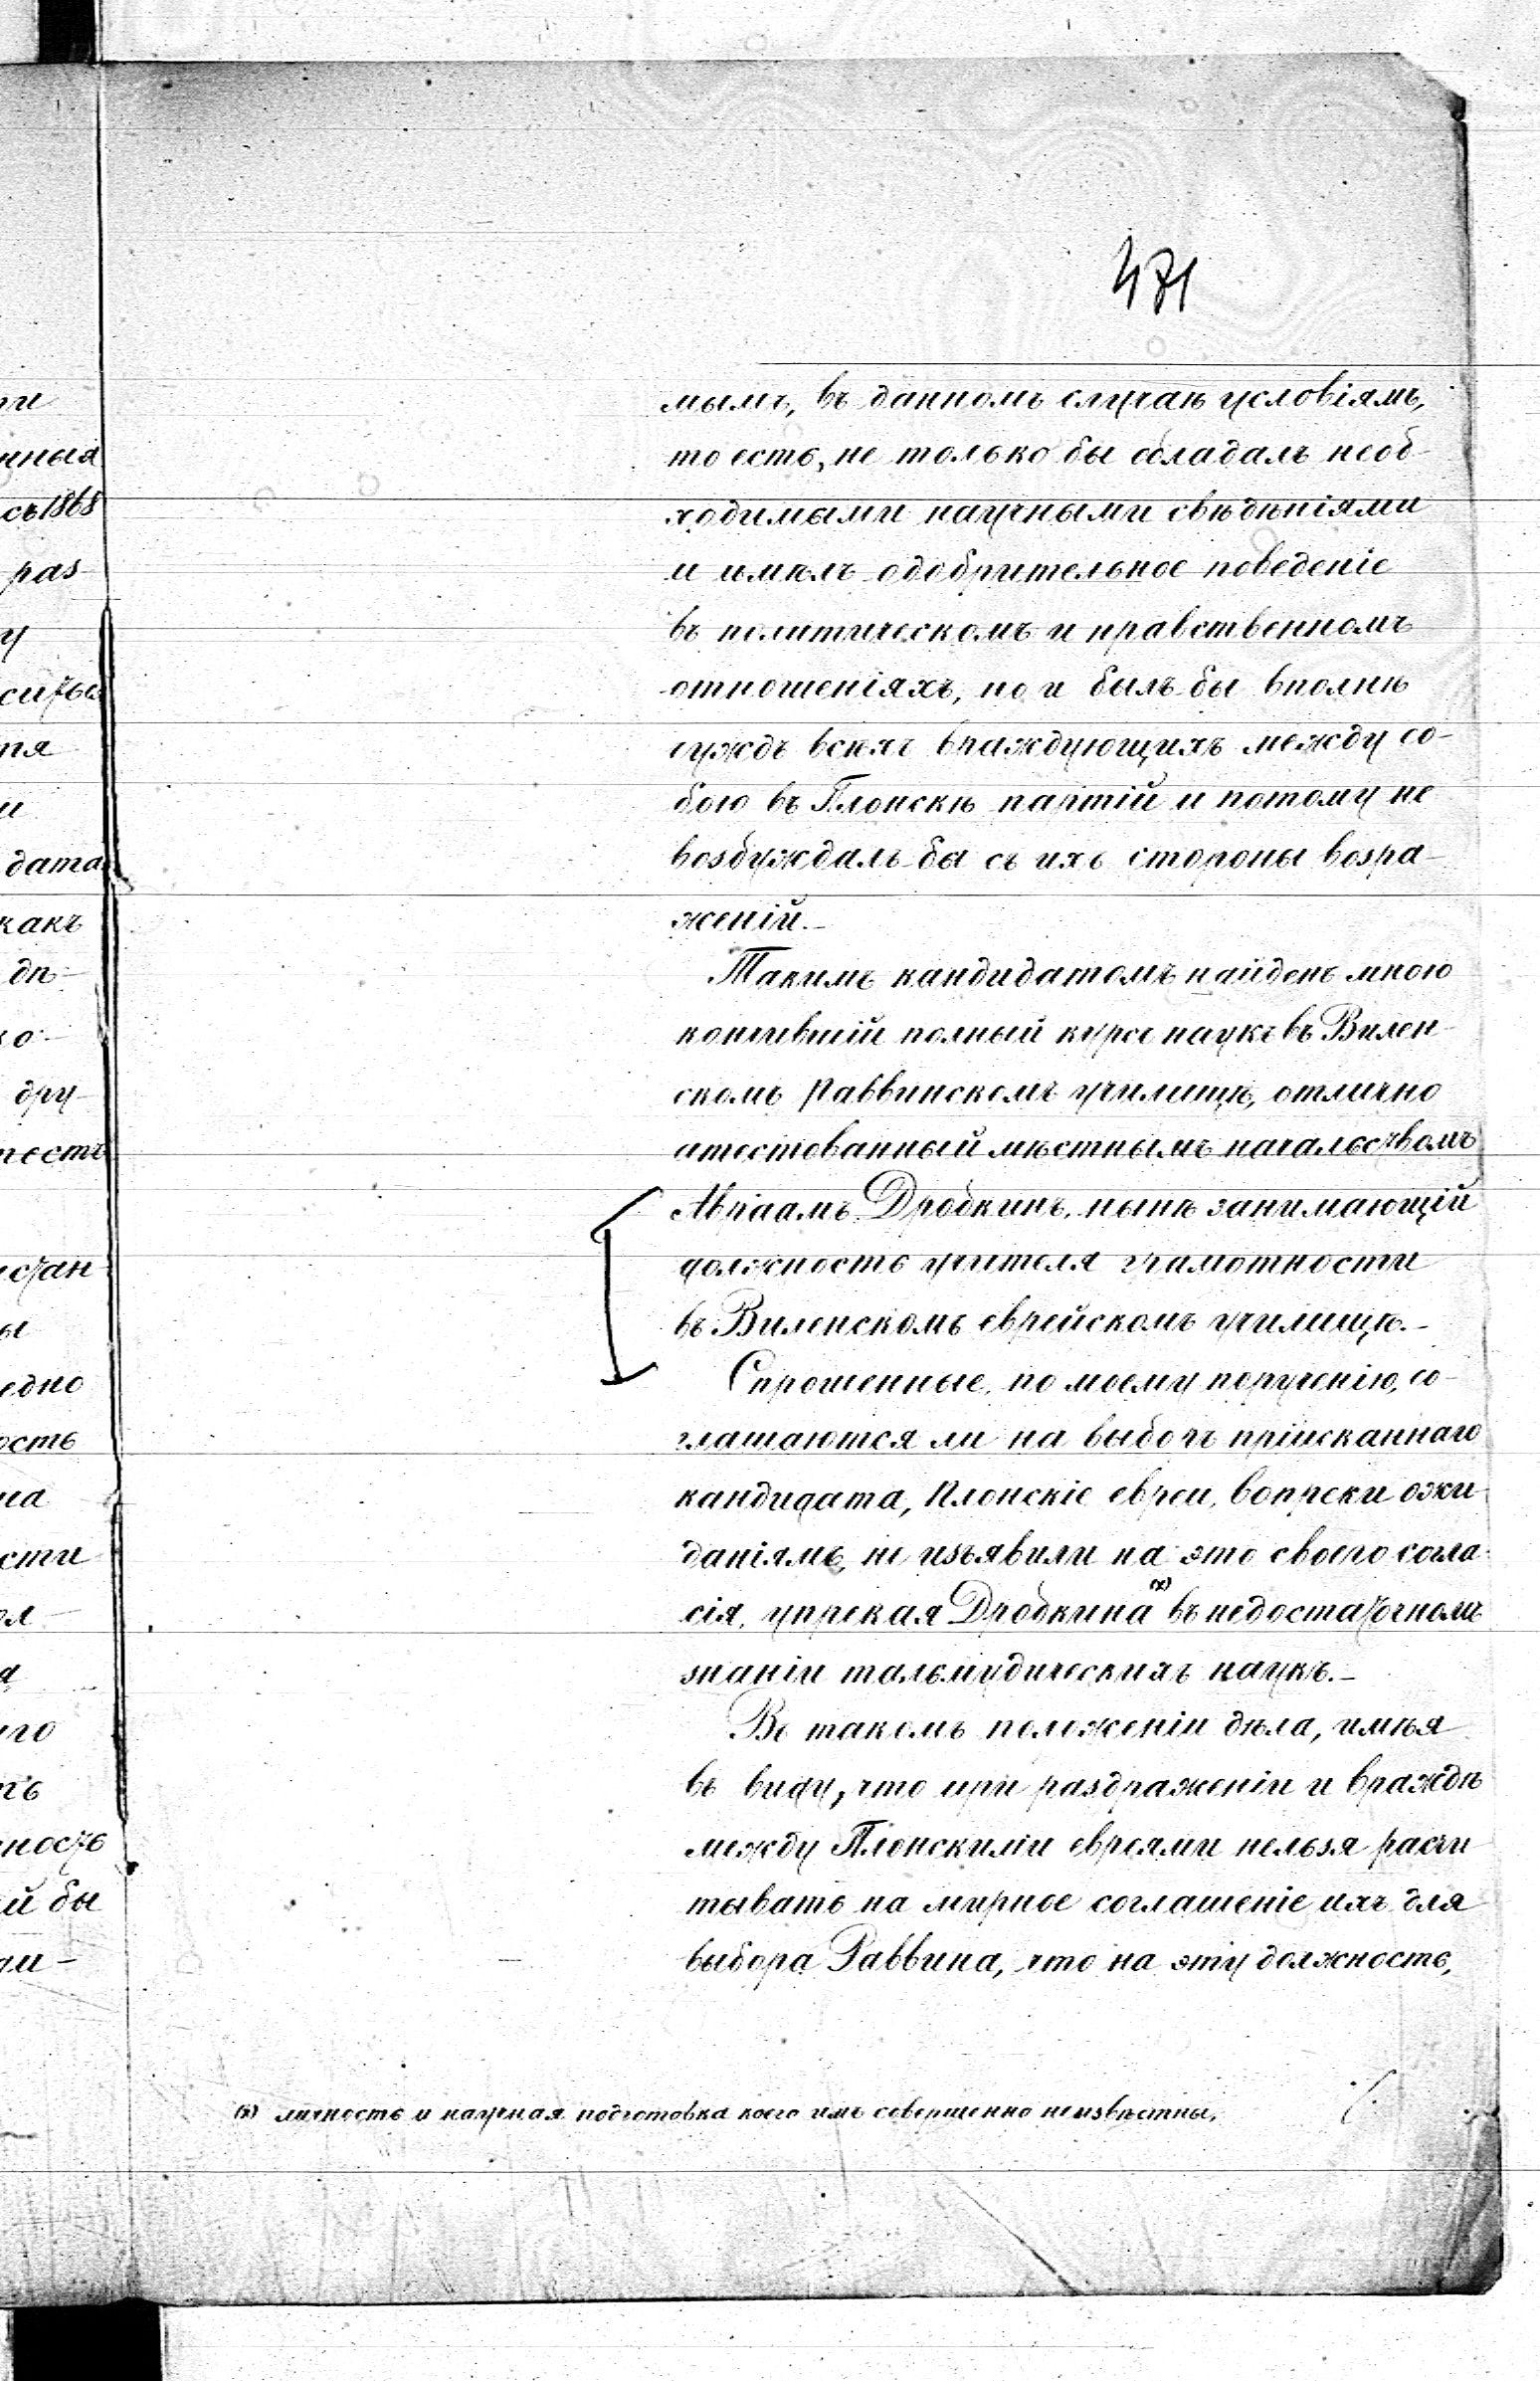 471
мымъ, въ данномъ случаѣ условіямъ,
то есть, не только бы обладалъ необ-
ходимыми научными свѣдѣніями
и имѣлъ одобрительное поведеніе
въ политическомъ и нравственномъ
отношеніяхъ, но и былъ бы вполнѣ
чуждъ всѣхъ враждующихъ между со-
бою въ Плонскѣ партій и потому не
возбуждалъ бы съ ихъ стороны возра-
женій.-
Такимъ кандидатомъ найденъ мною
кончившій полный курсъ наукъ въ Вилен-
скомъ Раввинскомъ училищѣ, отлично
атестованный мѣстнымъ начальствомъ
Авраамъ Дробкинъ, нынѣ занимающій
должность учителя грамотности
въ Виленскомъ еврейскомъ училищѣ.-
Спрошенные, по моему порученію, со-
глашаются ли на выборъ пріисканнаго
кандидата, Плонскіе евреи, вопреки ожи-
даніямъ, не изъявили на это своего согла-
сія, упрекая Дробкина (х) въ недостаточномъ
знаніи талмудическихъ наукъ.-
Въ такомъ положеніи дѣла, имѣя
въ виду, что при раздраженіи и враждѣ
между Плонскими евреями нельзя расчи
тывать на мирное соглашеніе ихъ для
выбора Раввина, что на эту должность,
(х) личность и научная подготовка коего имъ совершенно неизвѣстны,
ти
нныя
съ 1868
раз-
у
тя
и
дата
какъ
дѣ-
ко-
дру-
ы
едно
ость
на
сти
ол-
я
го
ность
й бы